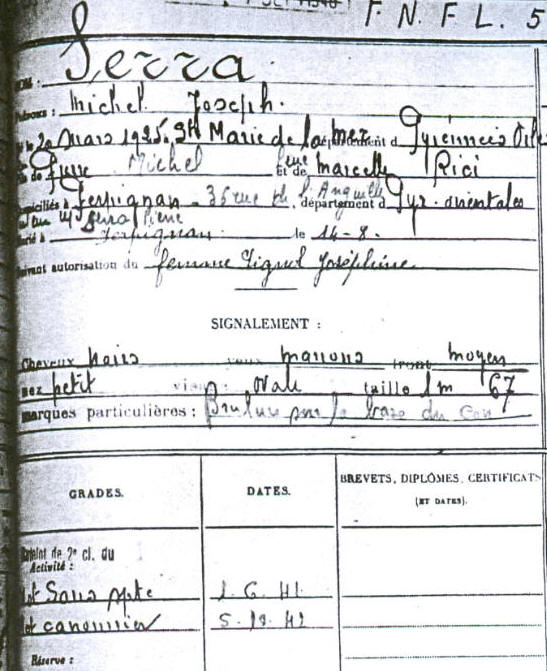 F. N. F. L. 5
NOM : Serra
Prénoms : Michel Joseph.
le 20 Mars 1925. Ste Marie de la mer département d Pyrénnées Ories
de Michel et de Marcelle Rici
domiciliés à Perpignan 36 rue de l'Anguille, département d Pyr. orientales
Marié à Perpignan. le 14-8.
Suivant autorisation du femme Joséphine.
SIGNALEMENT :
Cheveux noirs yeux marrons front moyen
nez petit visage : ovale taille 1 m 67
marques particulières : Brulure sur la base du Cou
GRADES. DATES. BREVETS, DIPLÔMES, CERTIFICATS
(ET DATES).
de 2e cl. du
Activité :
Mot Sans spte 1. 6. 41
Mot canonnier 42
Réserve :